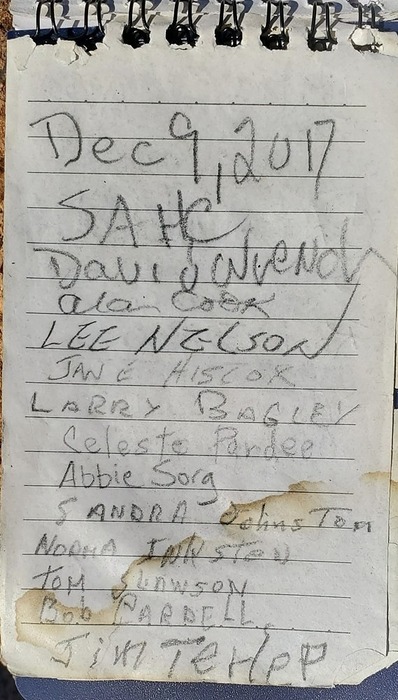 Dec 9, 2017
SAHC
David
Alan Cook
LEE NELSON
JANE HISCOX
LARRY BAGLEY
Celeste Pardee
Abbie Sorg
SANDRA JohnsTom
NORMA
TOM SLAWSON
Bob CARDELL
Jim